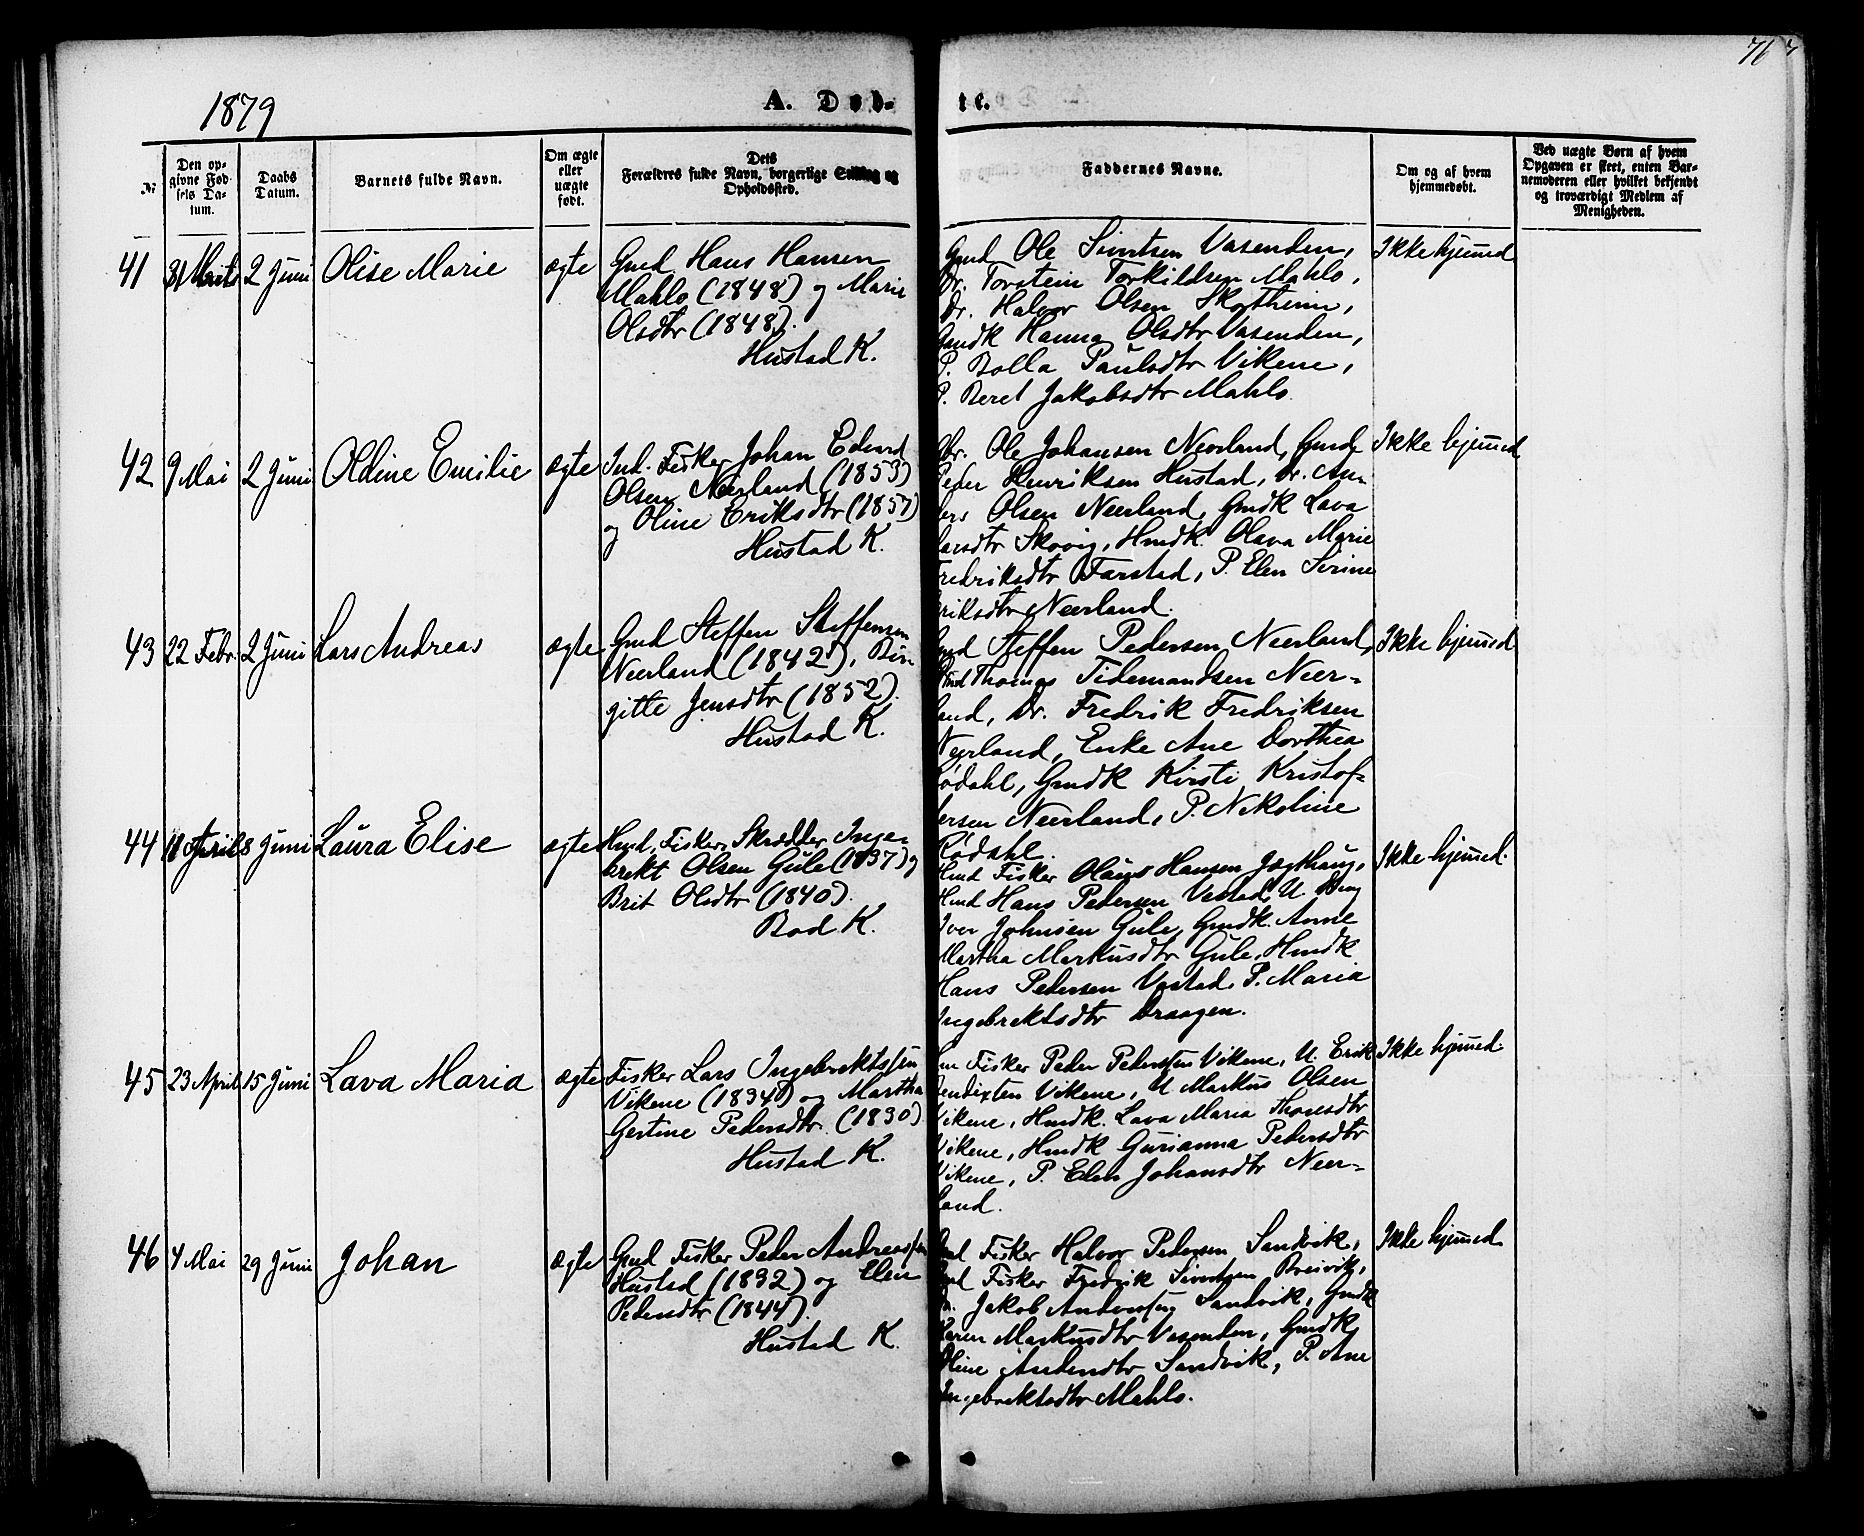 1879
76
A. Døb-
te.
№
Den op-
givne Fød-
sels Da-
tum.
Daabs
Datum.
Barnets fulde Navn.
Om ægte
eller
uægte
født.
Dets
Forældres fulde Navn, borgerlige Stilling og
Opholdssted.
Faddernes Navne.
Om og af hvem
hjemmedøbt.
Ved uægte Børn af hvem
Opgaven er skeet, enten Bar-
nemoderen eller hvilket bekjendt
og troværdigt Medlem af
Menigheden.
41 31 Marts 2 Juni Olise Marie ægte
Gmd Hans Hansen
Mahlo (1848) og Marie
Olsdtr (1848).
Hustad K.
Gmd Ole Sivertsen Vasenden,
Dr. Torstein Torkildsen Mahlo,
Dr. Halvor Olsen Skottheim,
Gmdk Hanna Olsdtr Vasenden,
P. Bolla Paulsdtr Vikene,
P. Beret Jakobsdtr Mahlo.
Ikke hjemmed
42 9 Mai 2 Juni Oldine Emilie ægte
Ind. Fisker Johan Edvard
Olsen Neerland (1853)
og Oline Eriksdtr (1857)
Hustad K.
Dr. Ole Johansen Neerland, Gmd
Peder Henriksen Hustad, Dr. An-
ders Olsen Neerland, Gmdk Lava
Larsdtr Skovig, Hmdk. Olava Marie
Fredriksdtr Farstad, P. Elen Sirine
Eriksdtr Neerland.
Ikke hjemmed
43 22 Febr. 2 Juni Lars Andreas ægte
Gmd Steffen Steffensen
Neerland (1842), Bir-
gitte Jensdtr (1852).
Hustad K.
Gmd Steffen Pedersen Neerland,
Gmd Thomas Tidemandsen Neer-
land, Dr. Fredrik Fredriksen
Neerland, Enke Ane Dorthea
Rødahl, Gmdk Kirsti Kristof-
fersen Neerland, P. Nikoline
Rødahl.
Ikke hjemmed
44 April 8 Juni Laura Elise ægte
Hmd, Fisker, Skrædder Inge-
brekt Olsen Gule (1837) og
Brit Olsdtr (1840).
Bod K.
Hmd Fisker Olaus Hansen Jægthaug,
Hmd Hans Pedersen Vestad, U. Mag
Iver Johnsen Gule, Gmdk. Anne
Martha Markusdtr Gule, Hmdk
Hans Pedersen Vestad, P. Maria
Ingebrektsdtr Draagen.
Ikke hjemmed.
45 23 April 15 Juni Lava Maria ægte
Fisker Lars Ingebrektssen
Vikene (1834) og Martha
Gertine Pedersdtr (1830)
Hustad K.
Fisker Peder Pederssen Vikene, U. Erik
Bendixten Vikene, U Markus Olsen
Vikene, Hmdk. Lava Maria Thoresdtr
Vikene, Hmdk Gurianna Pedersdtr
Vikene, P. Elen Johansdtr Neer-
land.
Ikke hjemmed.
46 4 Mai 29 Juni Johan ægte
Gmd Fisker Peder Andreassen
Hustad (1832) og Elen
Pedersdtr (1844).
Hustad K.
Gmd Fisker Halvor Pedersen Sandvik,
Gmd Fisker Fredrik Sivertsen Breivik,
Dr. Jakob Anderssen Sandvik, Gmdk
Maren Markusdtr Vasenden, Gmdk
Oline Andersdtr Sandvik, P. Ane
Ingebrektsdtr Mahlo.
Ikke hjemmed.